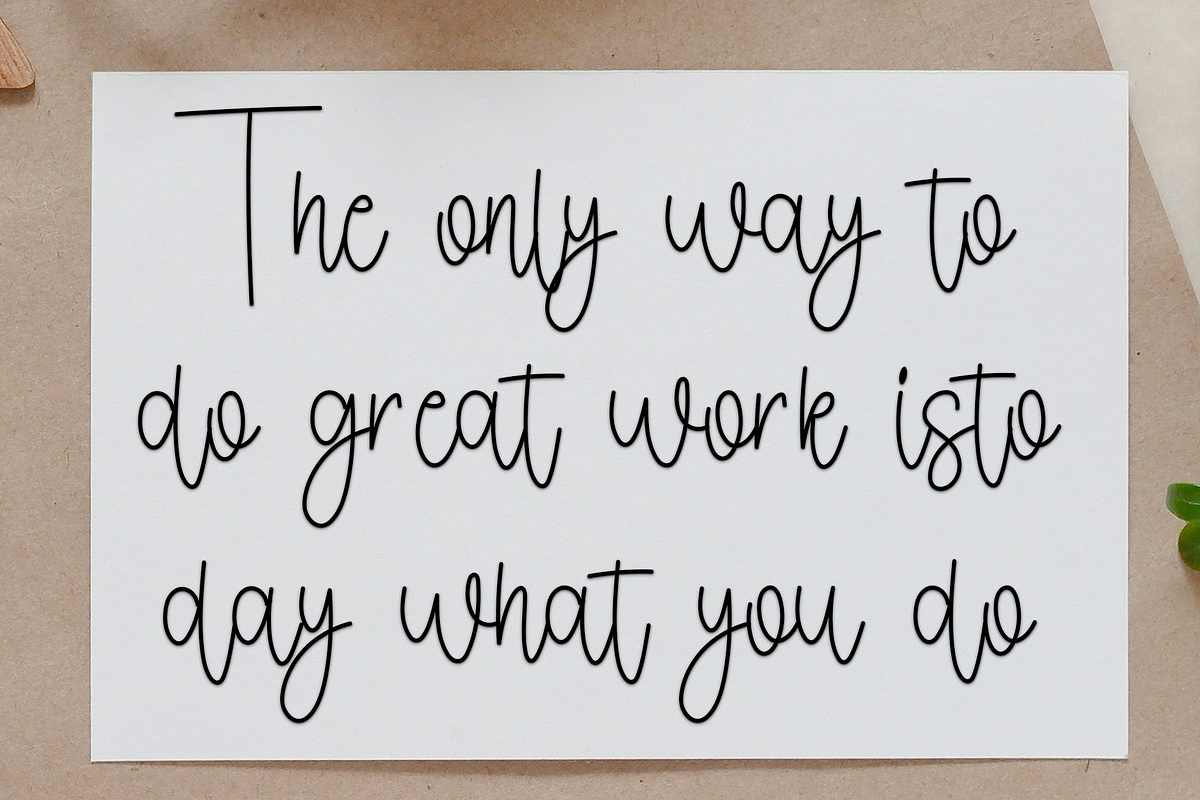 The only way to
do great work isto
day what you do